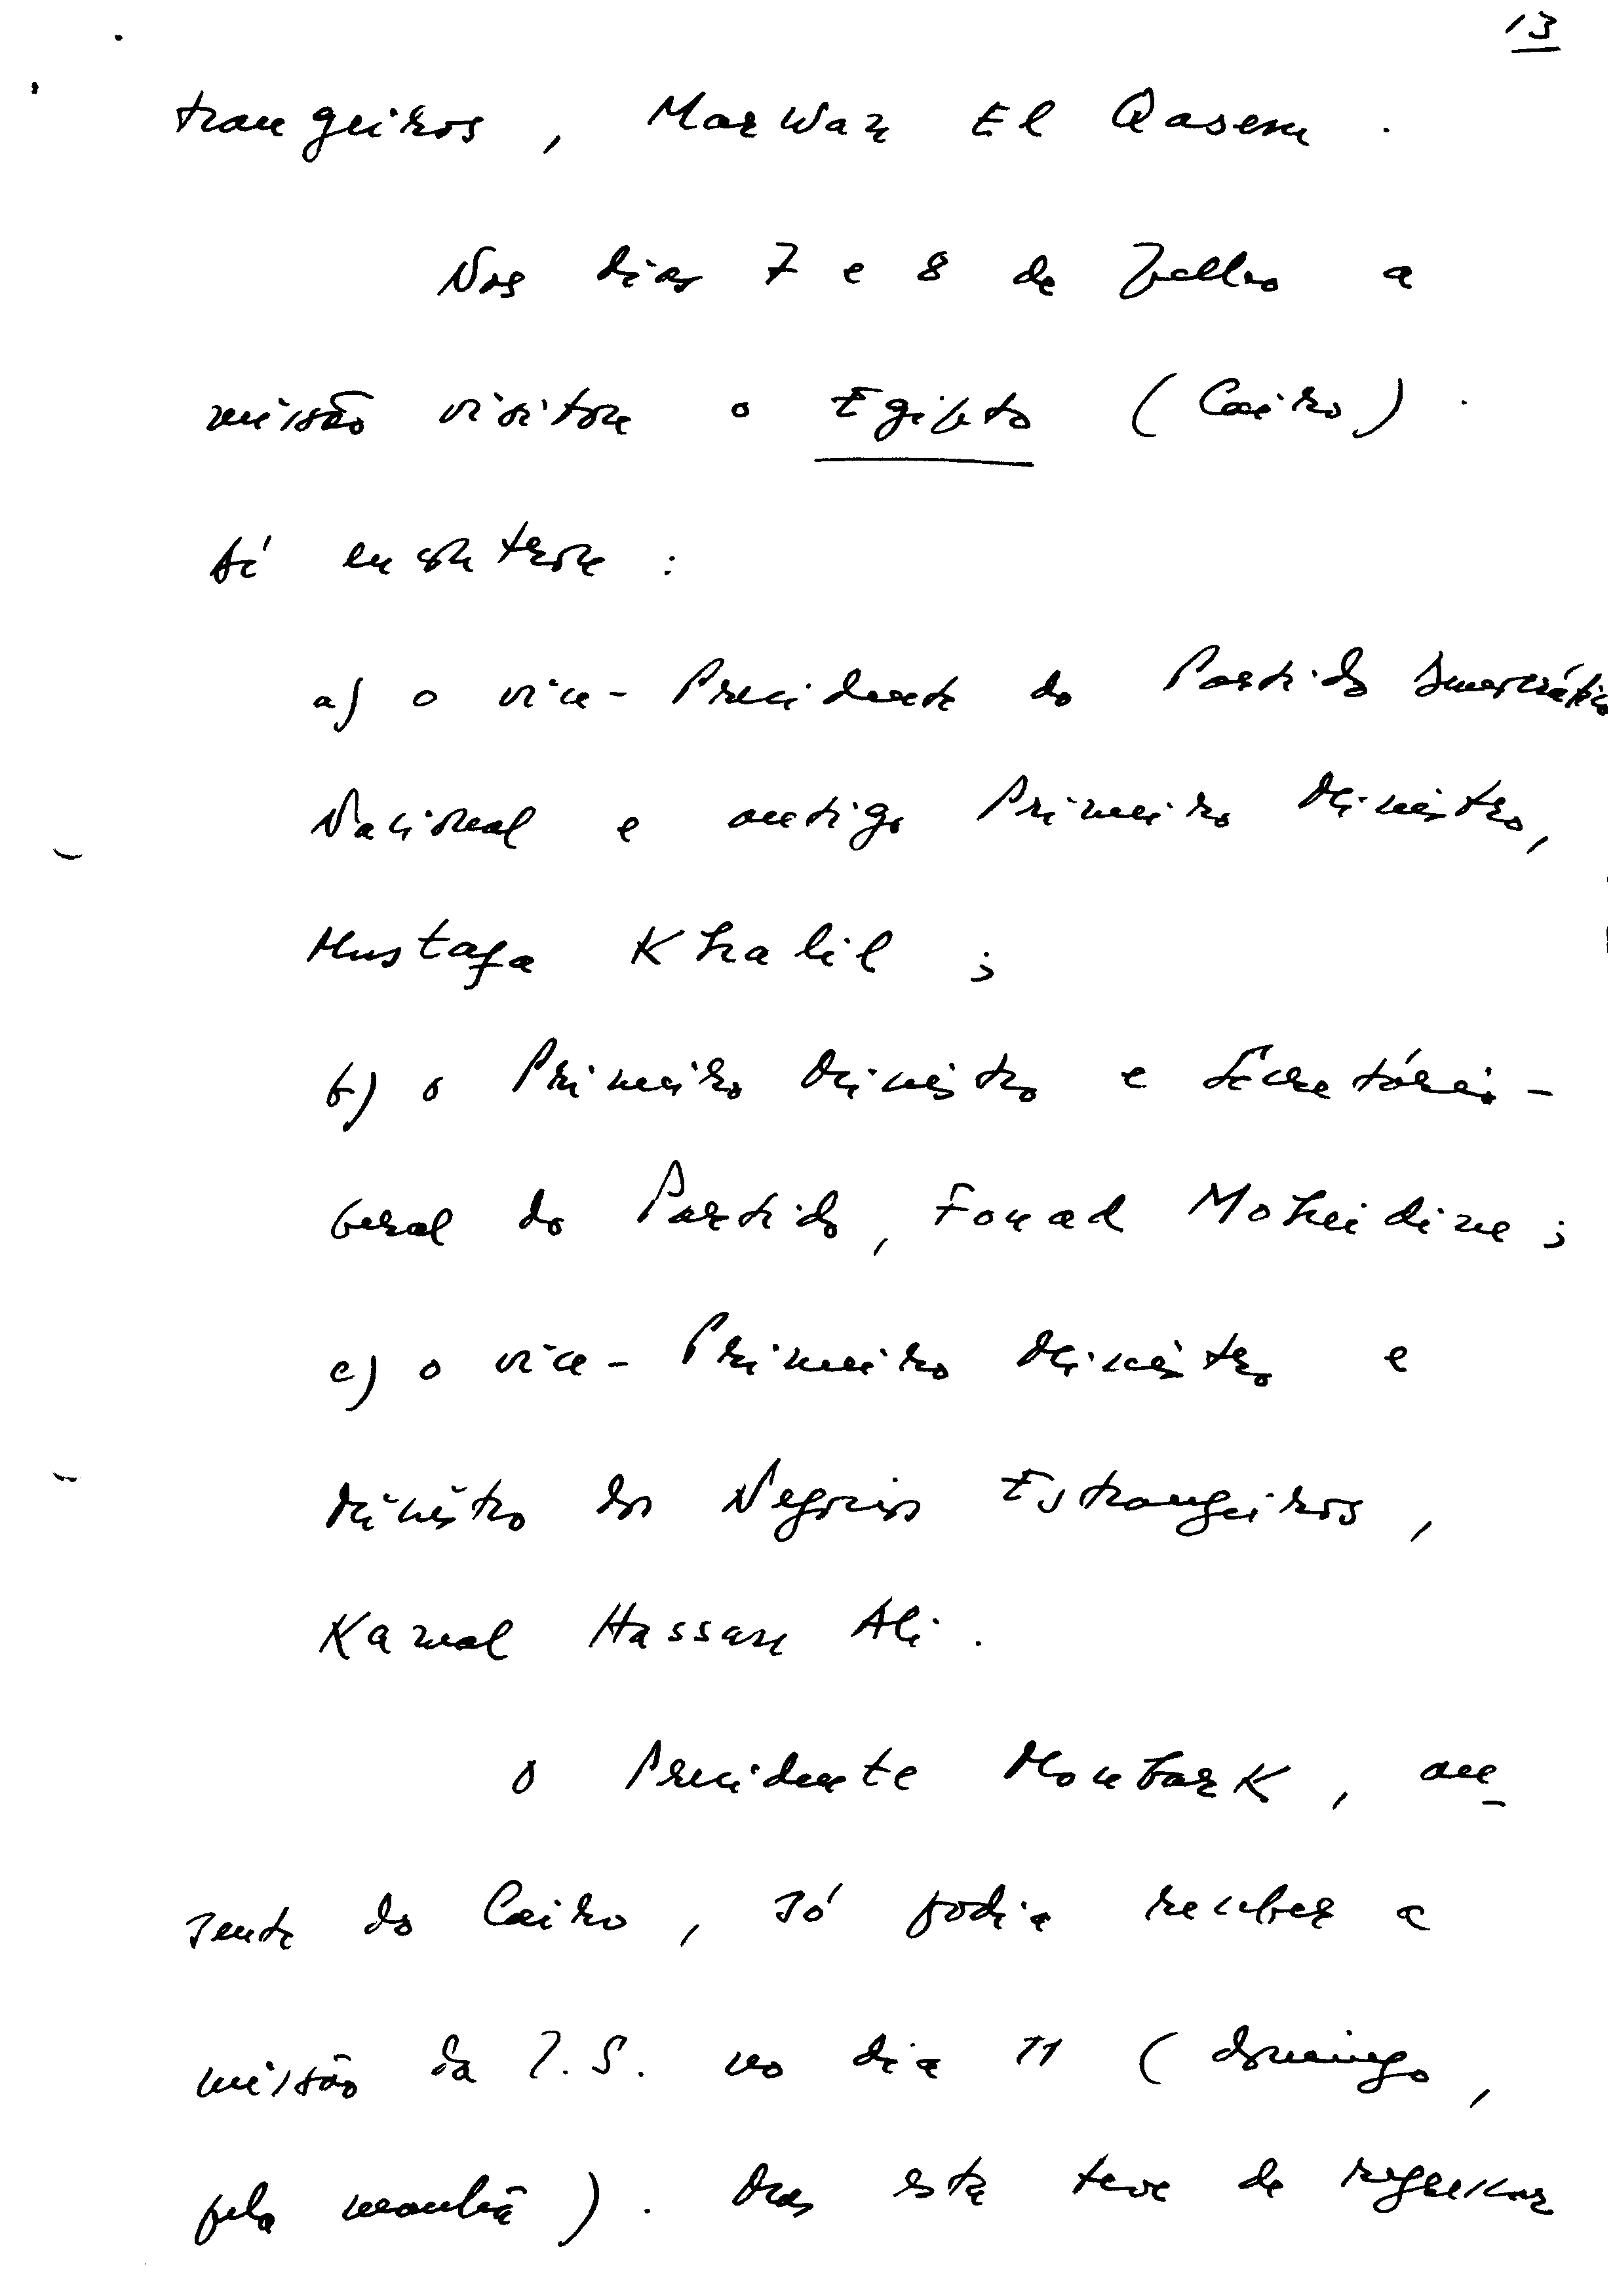 13
trangeiros, Marwan El Qasem.
Nos dias 7 e 8 de Julho a
missão visitou o Egipto (Cairo).
Aí encontrou:
a) o vice-Presidente do Partido Democrático
Nacional e antigo Primeiro Ministro,
Mustafa Khalil;
b) o Primeiro Ministro e Secretário-
Geral do Partido, Fouad Moheidine;
c) o vice-Primeiro Ministro e
Ministro dos Negócios Estrangeiros,
Kamal Hassan Ali.
O Presidente Moubark, au-
sente do Cairo, só podia receber a
missão da I.S. no dia 11 (domingo,
pela manhã). Mas esta teve de regressar